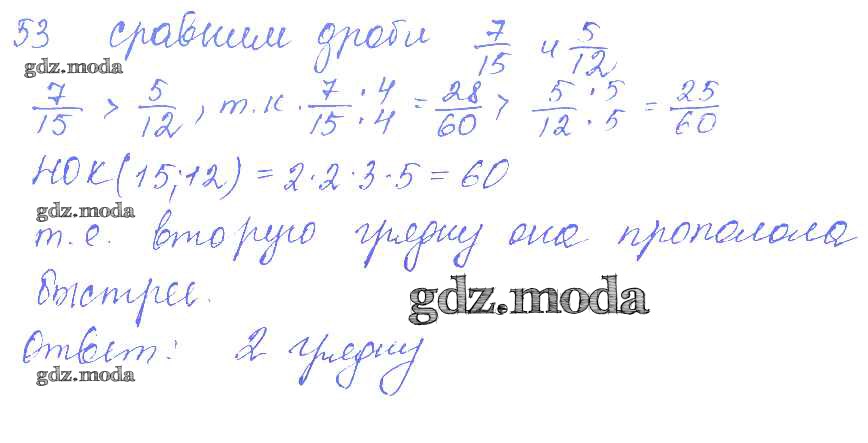 53 сравним дроби 7/15 и 5/12
gdz.moda
7/15 > 5/12, т.к. 7/15 · 4/4 = 28/60 > 5/12 · 5/5 = 25/60
НОК(15;12) = 2·2·3·5 = 60
gdz.moda
т.е. вторую грядку она прополола
быстрее.
gdz.moda
Ответ: 2 грядку
gdz.moda